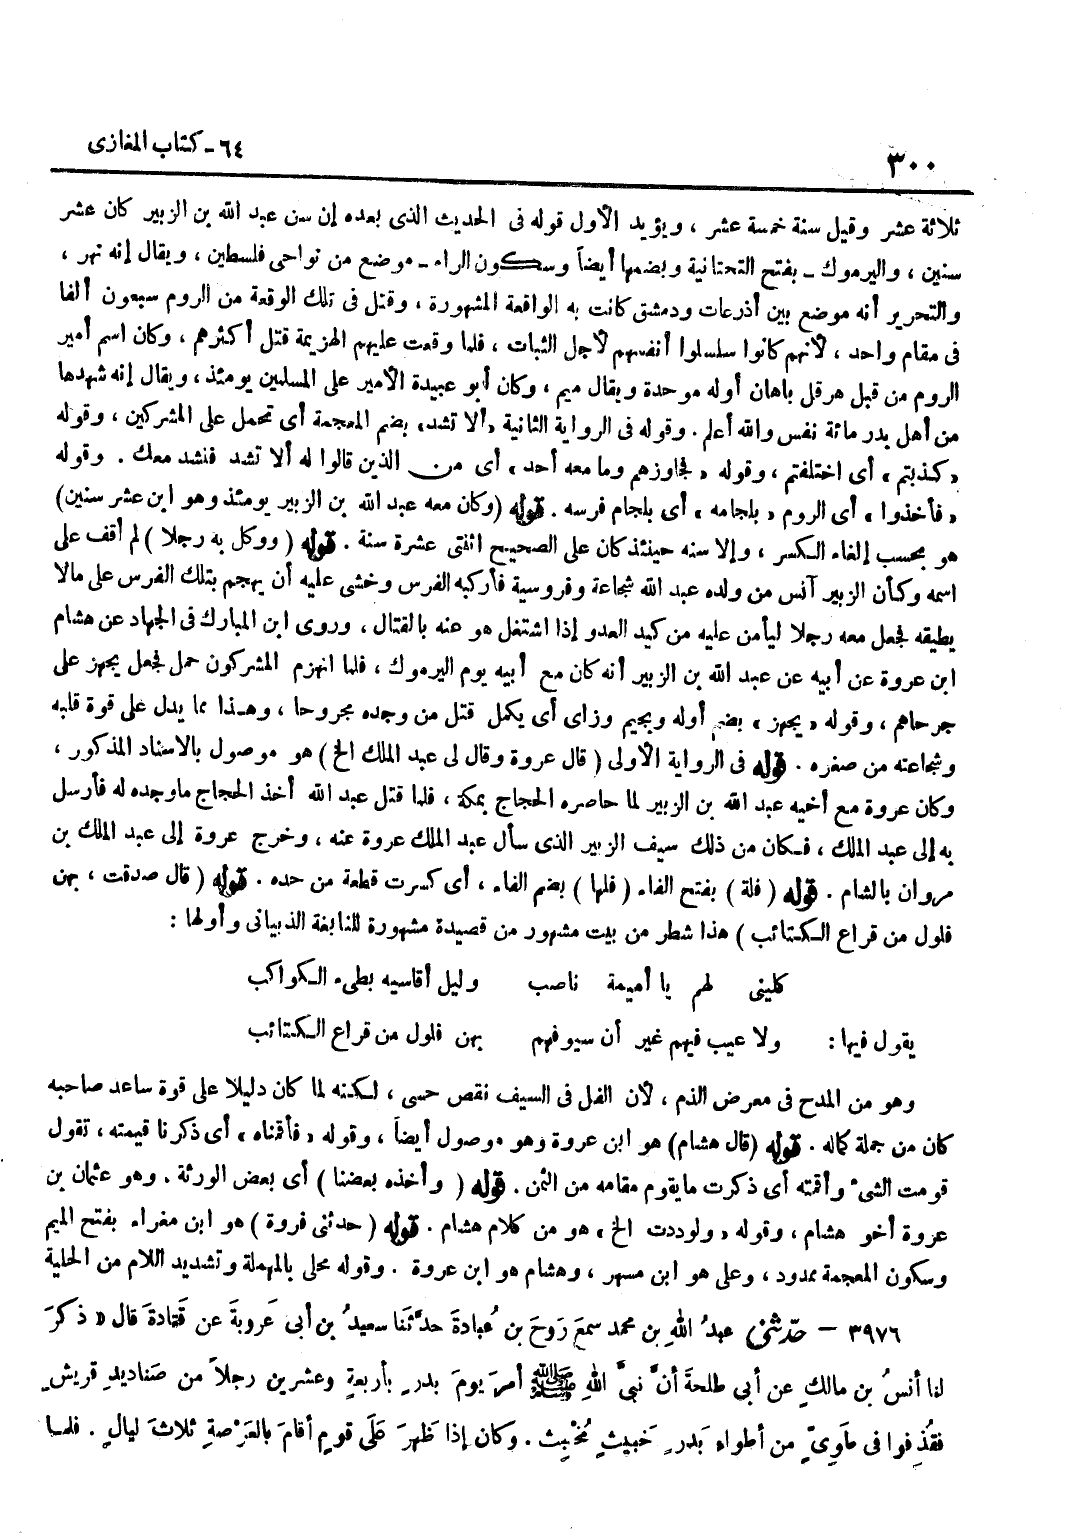 ٦٤ - كتاب المغازى
٣٠٠
ثلاثة عشر وقيل سنة خمسة عشر ، ويؤيد الأول قوله فى الحديث الذى بعده إن سن عبد الله بن الزبير كان عشر
سنين ، واليرموك ــ بفتح التحتانية وبضمها أيضاً وسكون الراء ــ موضع من نواحى فلسطين ، ويقال إنه نهر ،
والتحرير أنه موضع بين أذرعات ودمشق كانت به الواقعة المشهورة ، وقتل فى تلك الوقعة من الروم سبعون ألفا
فى مقام واحد ، لأنهم كانوا سلسلوا أنفسهم لأجل الثبات ، فلما وقعت عليهم الهزيمة قتل أكثرهم ، وكان اسم أمير
الروم من قبل هرقل باهان أوله موحدة ويقال ميم ، وكان أبو عبيدة الأمير على المسلمين يومئذ ، ويقال إنه شهدها
من أهل بدر مائة نفس والله أعلم . وقوله فى الرواية الثانية « ألا تشد » بضم المعجمة أى تحمل على المشركين ، وقوله
« كذبتم » أى اختلفتم ، وقوله « فجاوزهم وما معه أحد » أى من الذين قالوا له ألا تشد فنشد معك . وقوله
« فأخذوا » أى الروم « بلجامه » أى بلجام فرسه . قوله (وكان معه عبد الله بن الزبير يومئذ وهو ابن عشر سنين)
هو بحسب إلغاء الكسر ، وإلا سنه حينئذ كان على الصحيح اثنتى عشرة سنة . قوله ( ووكل به رجلا ) لم أقف على
اسمه وكأن الزبير آنس من ولده عبد الله شجاعة وفروسية فأركبه الفرس وخشى عليه أن يهجم بتلك الفرس على مالا
يطيقه فجعل معه رجلا ليأمن عليه من كيد العدو إذا اشتغل هو عنه بالقتال ، وروى ابن المبارك فى الجهاد عن هشام
ابن عروة عن أبيه عن عبد الله بن الزبير أنه كان مع أبيه يوم اليرموك ، فلما انهزم المشركون حمل فجعل يجهز على
جرحاهم ، وقوله « يجهز » بضم أوله وبجيم وزاى أى يكمل قتل من وجده مجروحا ، وهذا مما يدل على قوة قلبه
وشجاعته من صغره . قوله فى الرواية الأولى ( قال عروة وقال لى عبد الملك الخ ) هو موصول بالاسناد المذكور ،
وكان عروة مع أخيه عبد الله بن الزبير لما حاصره الحجاج بمكة ، فلما قتل عبد الله أخذ الحجاج ماوجده له فأرسل
به إلى عبد الملك ، فكان من ذلك سيف الزبير الذى سأل عبد الملك عروة عنه ، وخرج عروة إلى عبد الملك بن
مروان بالشام . قوله ( فلة ) بفتح الفاء ( فلها ) بضم الفاء ، أى كسرت قطعة من حده . قوله ( قال صدقت ، بهن
فلول من قراع الكتائب ) هذا شطر من بيت مشهور من قصيدة مشهورة للنابغة الذبيانى وأولها :
كلينى لهم يا أميمة ناصب وليل أقاسيه بطىء الكواكب
يقول فيها : ولا عيب فيهم غير أن سيوفهم بهن فلول من قراع الكتائب
وهو من المدح فى معرض الذم ، لأن الفل فى السيف نقص حسى ، لكنه لما كان دليلا على قوة ساعد صاحبه
كان من جملة كماله . قوله (قال هشام) هو ابن عروة وهو موصول أيضاً ، وقوله « فأقمناه » أى ذكرنا قيمته ، تقول
قومت الشىء وأقمته أى ذكرت مايقوم مقامه من الثمن . قوله ( وأخذه بعضنا ) أى بعض الورثة ، وهو عثمان بن
عروة أخو هشام ، وقوله « ولوددت الخ » هو من كلام هشام . قوله ( حدثنى فروة ) هو ابن مغراء بفتح الميم
وسكون المعجمة ممدود ، وعلى هو ابن مسهر ، وهشام هو ابن عروة . وقوله محلى بالمهملة وتشديد اللام من الحلية
٣٩٧٦ ــ حدّثنى عبدُ اللهِ بن محمد سمعَ رَوحَ بن عُبادةَ حدَّثَنا سعيدُ بن أبى عَروبةَ عن قَتادةَ قال « ذكرَ
لنا أنسُ بن مالكٍ عن أبى طلحةَ أنَّ نبىَّ اللهِ ﷺ أمرَ يومَ بدرٍ بأربعةٍ وعشرين رجلاً من صَناديدِ قريشٍ
فقُذِفوا فى طَوِىٍّ من أطواءِ بَدرٍ خَبيثٍ مُخْبِثٍ . وكان إذا ظَهرَ عَلَى قومٍ أقامَ بالعَرْصةِ ثلاثَ ليالٍ . فلما